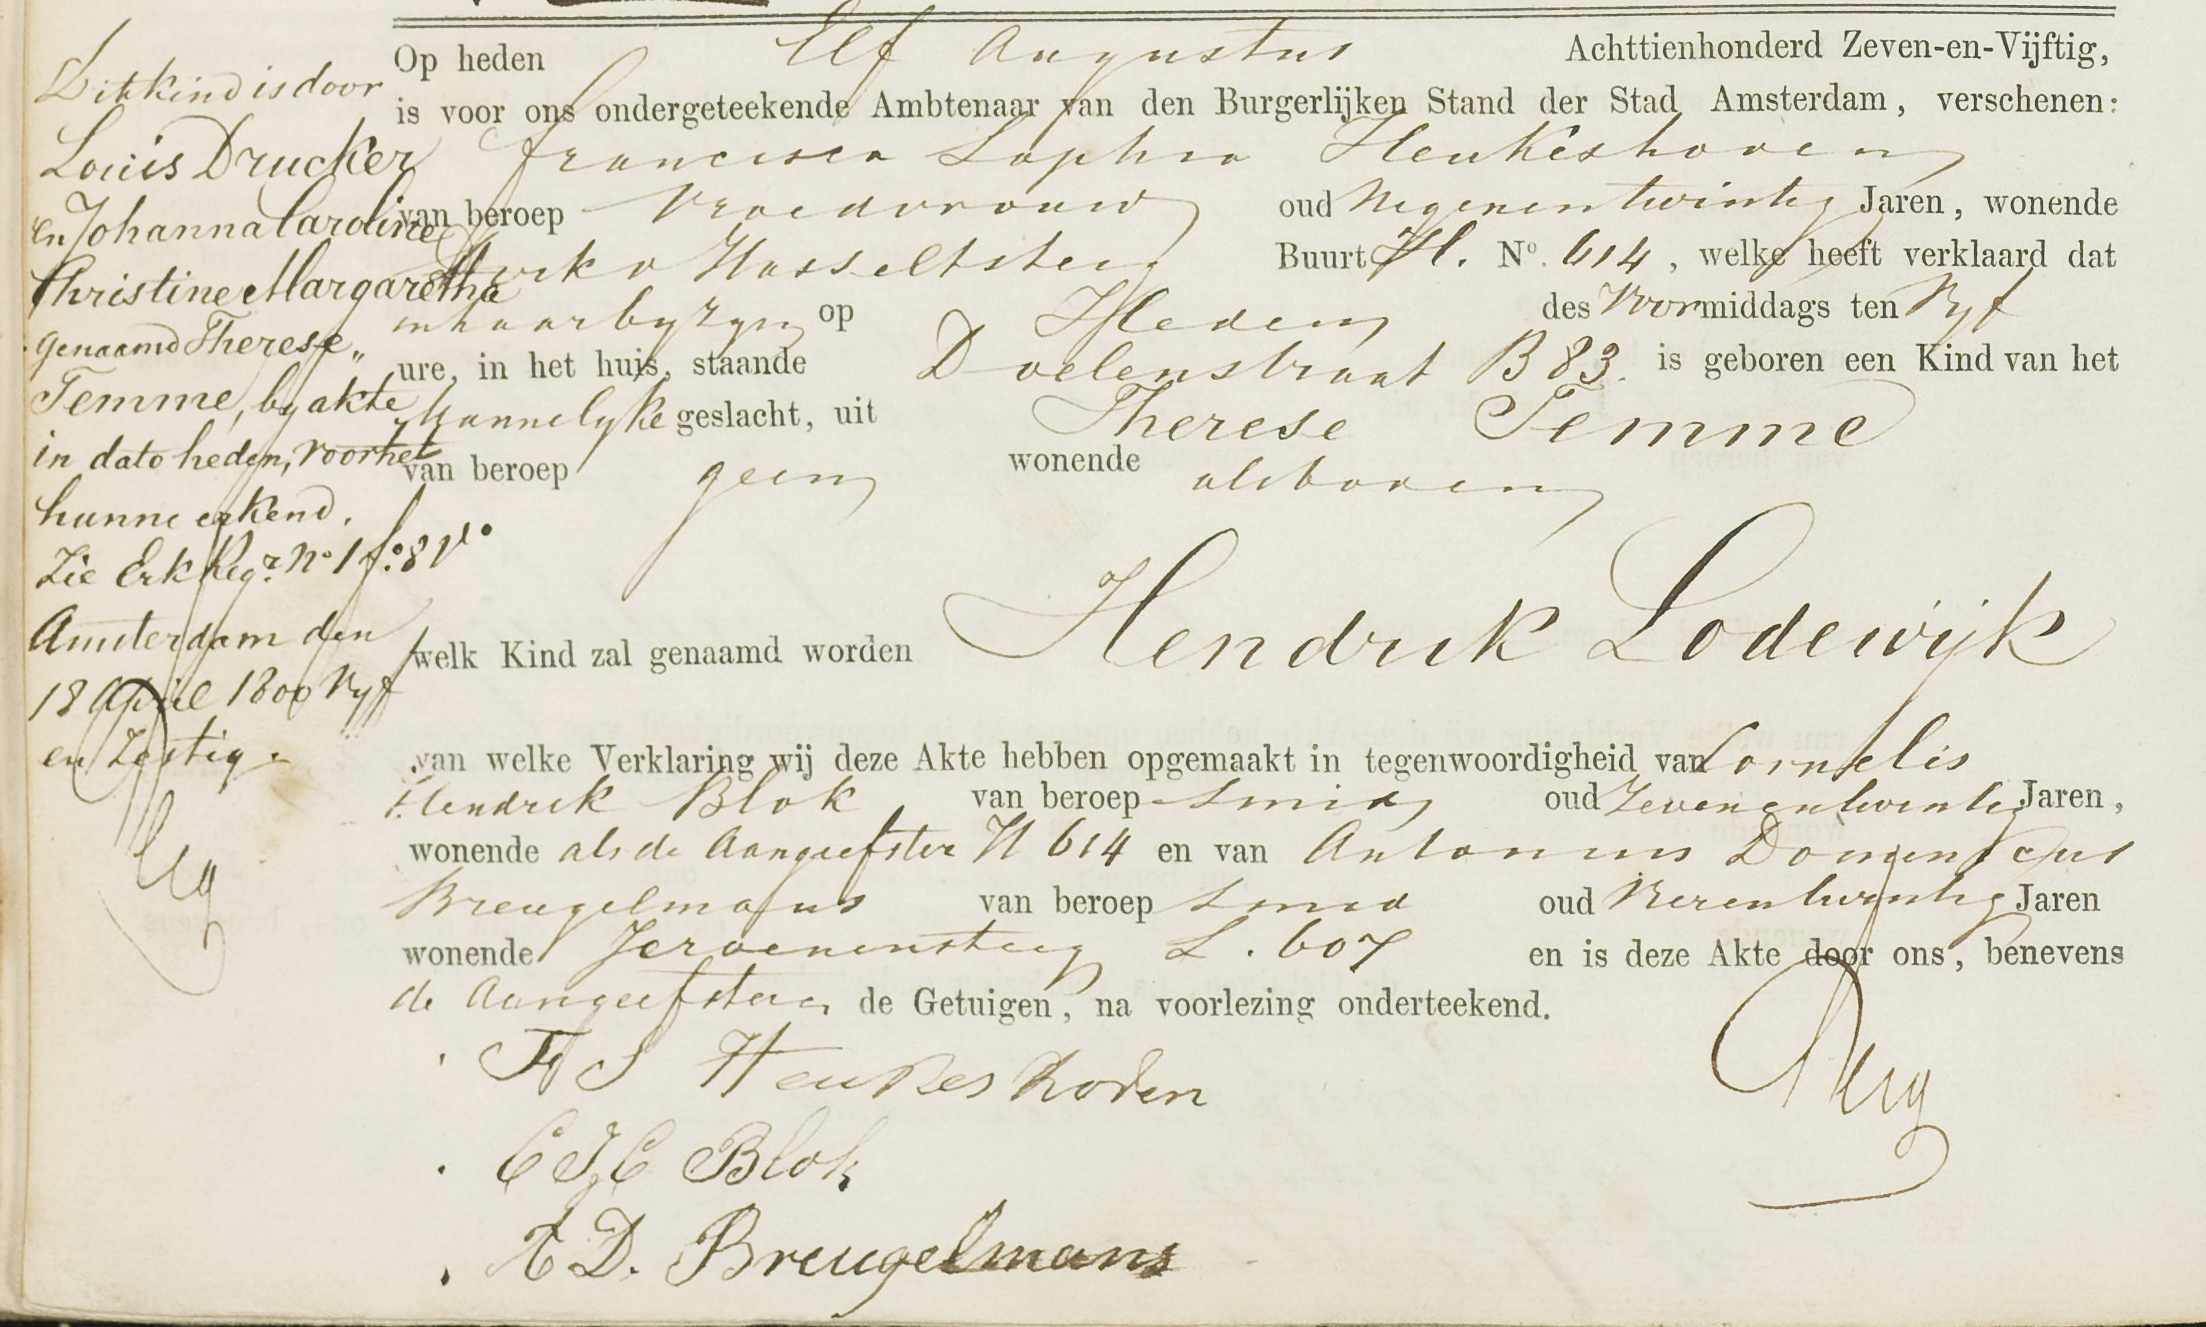 Dit kind is door
Louis Drucker
en Johanna Caroline
Christine Margaretha
genaamd Therese „
Temme, by akte
in dato heden, voor het
hunne erkend.
Zie Erk Regr. No 1 fo. 8 vo
Amsterdam den
18 April 1800 vyf
en Zestig.
Op heden Elf Augustus Achttienhonderd Zeven-en-Vijftig,
is voor ons ondergeteekende Ambtenaar van den Burgerlijken Stand der Stad Amsterdam, verschenen:
Francisca Sophia Heukeshoven
van beroep Vroedvrouw oud Negenentwintig Jaren, wonende
Hasseltsteeg Buurt H. No. 614, welke heeft verklaard dat
in haar byzyn op Heden des Voormiddags ten Vyf
ure, in het huis, staande Doelenstraat B 83. is geboren een Kind van het
Mannelyke geslacht, uit Therese Temme
van beroep geen wonende alsboven
welk Kind zal genaamd worden Hendrik Lodewijk
van welke Verklaring wij deze Akte hebben opgemaakt in tegenwoordigheid van Cornelis
Hendrik Blok van beroep Smid oud Zevenentwintig Jaren,
wonende als de Aangeefster H 614 en van Antonius Dominicus
Breugelmans van beroep Smid oud Vierentwintig Jaren
wonende Jeroenensteeg L. 607 en is deze Akte door ons, benevens
de Aangeefster, de Getuigen, na voorlezing onderteekend.
F S Heukeshoven
Blok
A D. Breugelmans